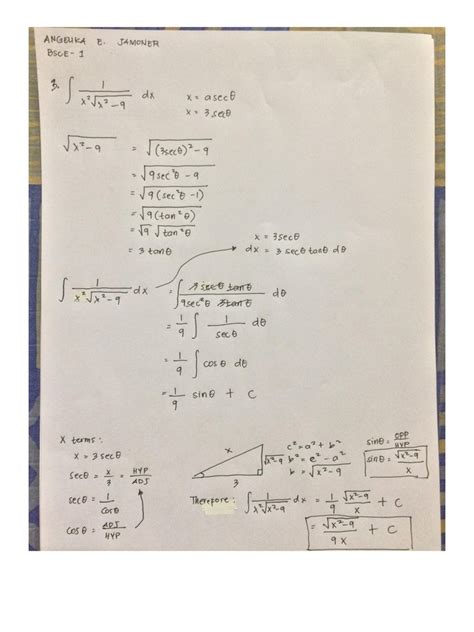 ANGELIKA E. JAMONER
BSCE - 1
3. ∫ 1 / (x²√(x² - 9)) dx    x = a secθ
x = 3 secθ
√(x² - 9) = √((3secθ)² - 9)
= √(9 sec²θ - 9)
= √(9 (sec²θ - 1))
= √(9 (tan²θ))
= √9 √(tan²θ)
= 3 tanθ
x = 3secθ
dx = 3 secθ tanθ dθ
∫ 1 / (x²√(x² - 9)) dx = ∫ 3 secθ tanθ / (9sec²θ 3tanθ) dθ
= 1/9 ∫ 1/secθ dθ
= 1/9 ∫ cosθ dθ
= 1/9 sinθ + C
X terms:
x = 3 secθ
secθ = x/3 = HYP/ADJ
secθ = 1/cosθ
cosθ = ADJ/HYP
x
√x²-9
3
c² = a² + b²
b² = c² - a²
b = √(x² - 9)
sinθ = OPP/HYP
sinθ = √(x² - 9)/x
Therefore: ∫ 1 / (x²√(x² - 9)) dx = 1/9 √(x² - 9)/x + C
= √(x² - 9)/9x + C